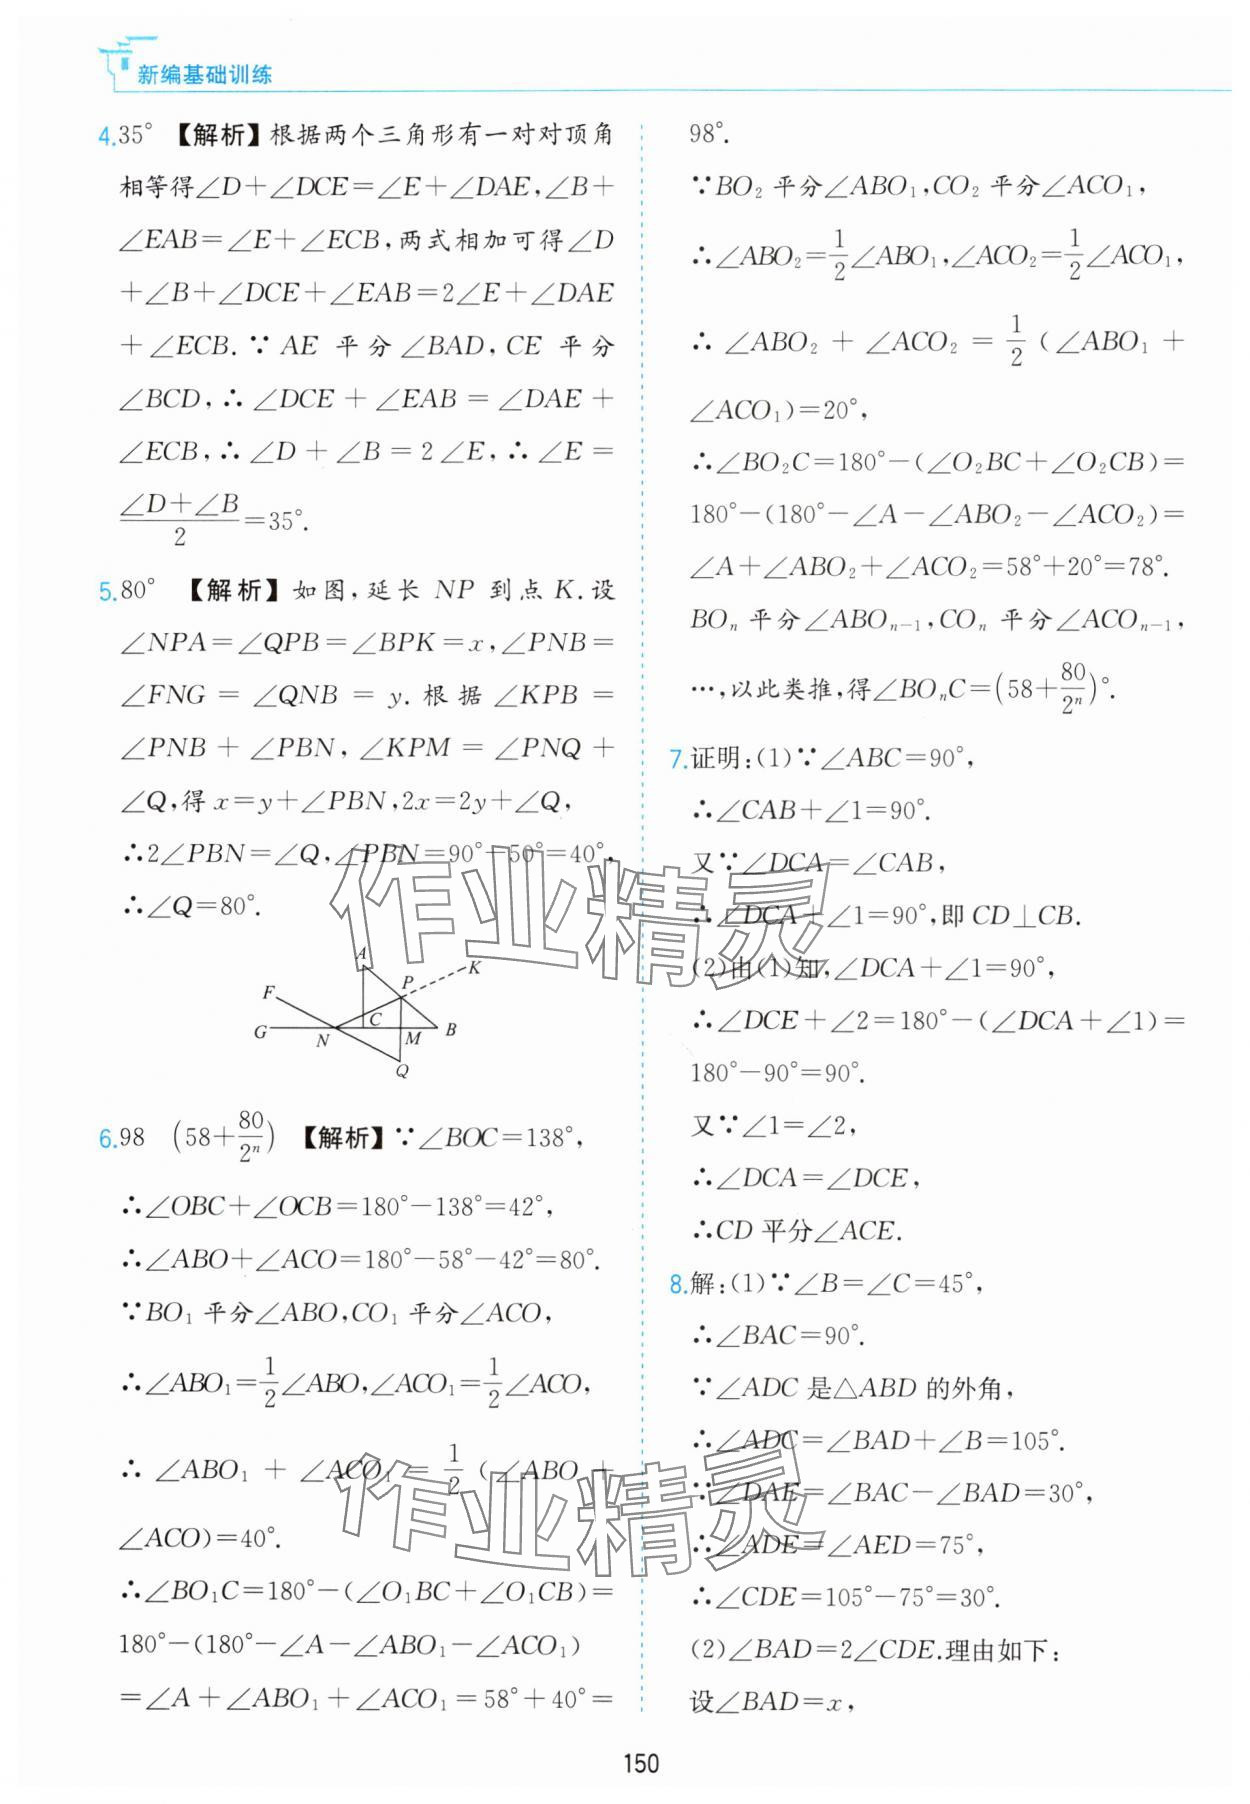 新编基础训练
4.35° 【解析】根据两个三角形有一对对顶角
相等得∠D+∠DCE=∠E+∠DAE,∠B+
∠EAB=∠E+∠ECB,两式相加可得∠D
+∠B+∠DCE+∠EAB=2∠E+∠DAE
+∠ECB.∵AE 平分∠BAD,CE 平分
∠BCD,∴∠DCE+∠EAB=∠DAE+
∠ECB,∴∠D+∠B=2∠E,∴∠E=
(∠D+∠B)/2=35°.
5.80° 【解析】如图,延长 NP 到点 K.设
∠NPA=∠QPB=∠BPK=x,∠PNB=
∠FNG=∠QNB=y.根据∠KPB=
∠PNB+∠PBN,∠KPM=∠PNQ+
∠Q,得 x=y+∠PBN,2x=2y+∠Q,
∴2∠PBN=∠Q,∠PBN=90°-50°=40°,
∴∠Q=80°.
A
K
P
F
G
N
C
M
B
Q
6.98 (58+80/2ⁿ) 【解析】∵∠BOC=138°,
∴∠OBC+∠OCB=180°-138°=42°,
∴∠ABO+∠ACO=180°-58°-42°=80°.
∵BO₁ 平分∠ABO,CO₁ 平分∠ACO,
∴∠ABO₁=1/2∠ABO,∠ACO₁=1/2∠ACO,
∴∠ABO₁+∠ACO₁=1/2(∠ABO+
∠ACO)=40°.
∴∠BO₁C=180°-(∠O₁BC+∠O₁CB)=
180°-(180°-∠A-∠ABO₁-∠ACO₁)
=∠A+∠ABO₁+∠ACO₁=58°+40°=
98°.
∵BO₂ 平分∠ABO₁,CO₂ 平分∠ACO₁,
∴∠ABO₂=1/2∠ABO₁,∠ACO₂=1/2∠ACO₁,
∴∠ABO₂+∠ACO₂=1/2(∠ABO₁+
∠ACO₁)=20°,
∴∠BO₂C=180°-(∠O₂BC+∠O₂CB)=
180°-(180°-∠A-∠ABO₂-∠ACO₂)=
∠A+∠ABO₂+∠ACO₂=58°+20°=78°.
BOₙ 平分∠ABOₙ₋₁,COₙ 平分∠ACOₙ₋₁,
…,以此类推,得∠BOₙC=(58+80/2ⁿ)°.
7.证明:(1)∵∠ABC=90°,
∴∠CAB+∠1=90°.
又∵∠DCA=∠CAB,
∴∠DCA+∠1=90°,即 CD⊥CB.
(2)由(1)知,∠DCA+∠1=90°,
∴∠DCE+∠2=180°-(∠DCA+∠1)=
180°-90°=90°.
又∵∠1=∠2,
∴∠DCA=∠DCE,
∴CD 平分∠ACE.
8.解:(1)∵∠B=∠C=45°,
∴∠BAC=90°.
∵∠ADC 是△ABD 的外角,
∴∠ADC=∠BAD+∠B=105°.
∵∠DAE=∠BAC-∠BAD=30°,
∴∠ADE=∠AED=75°,
∴∠CDE=105°-75°=30°.
(2)∠BAD=2∠CDE.理由如下:
设∠BAD=x,
作业精灵
作业精灵
150